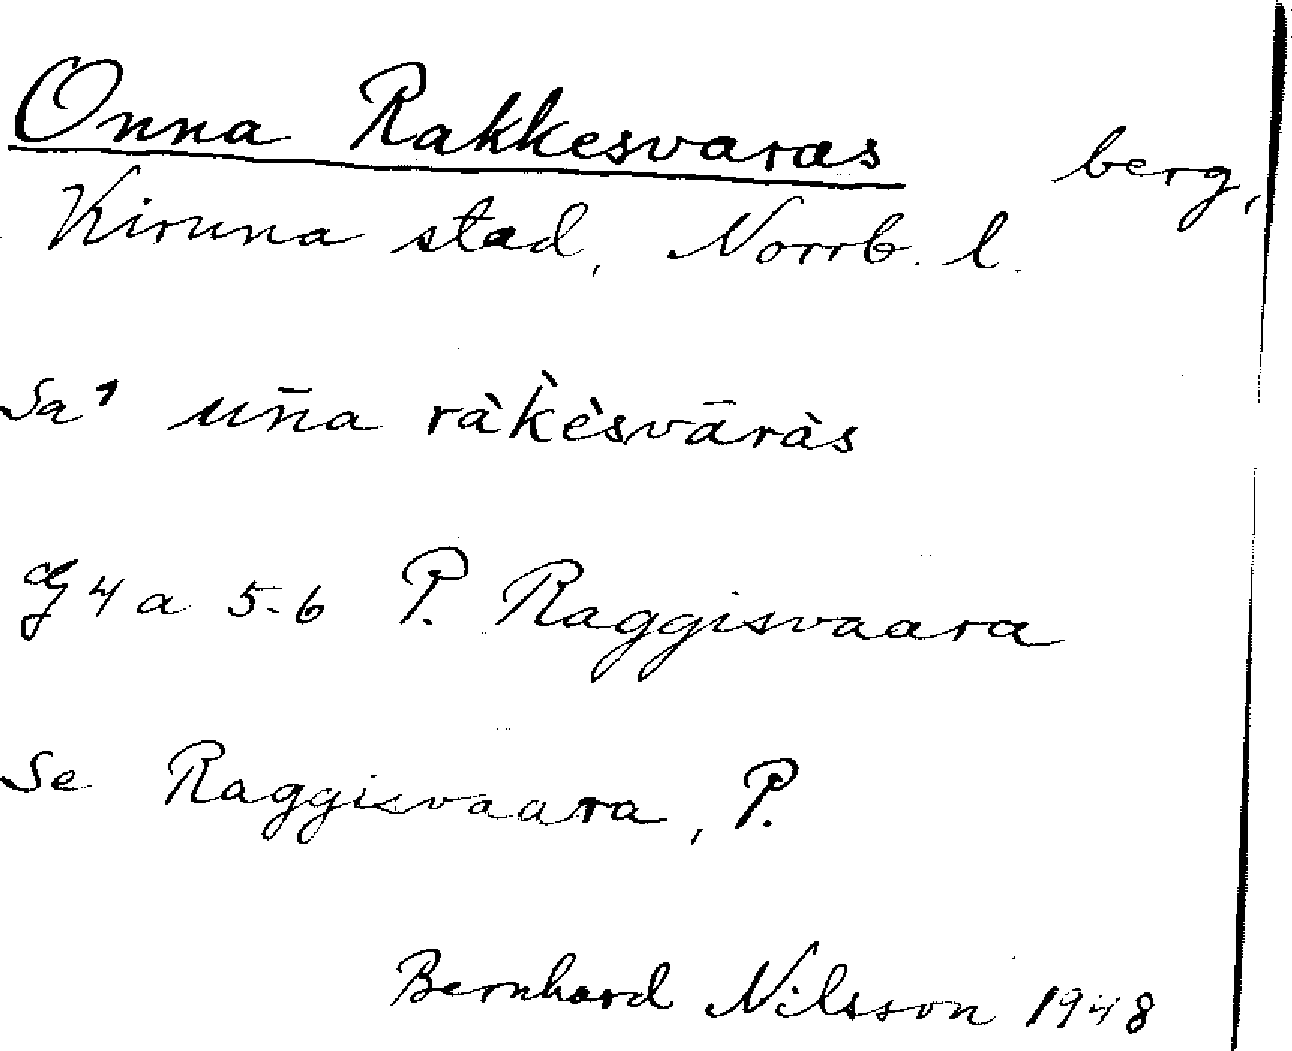 Onna Rakkesvaras berg,
Kiruna stad, Norrb. l.
Sa' un̄a ràk̀èsvāràs
G4a 5-6 P. Raggisvaara
Se Raggisvaara, P.
Bernhard Nilsson 1948